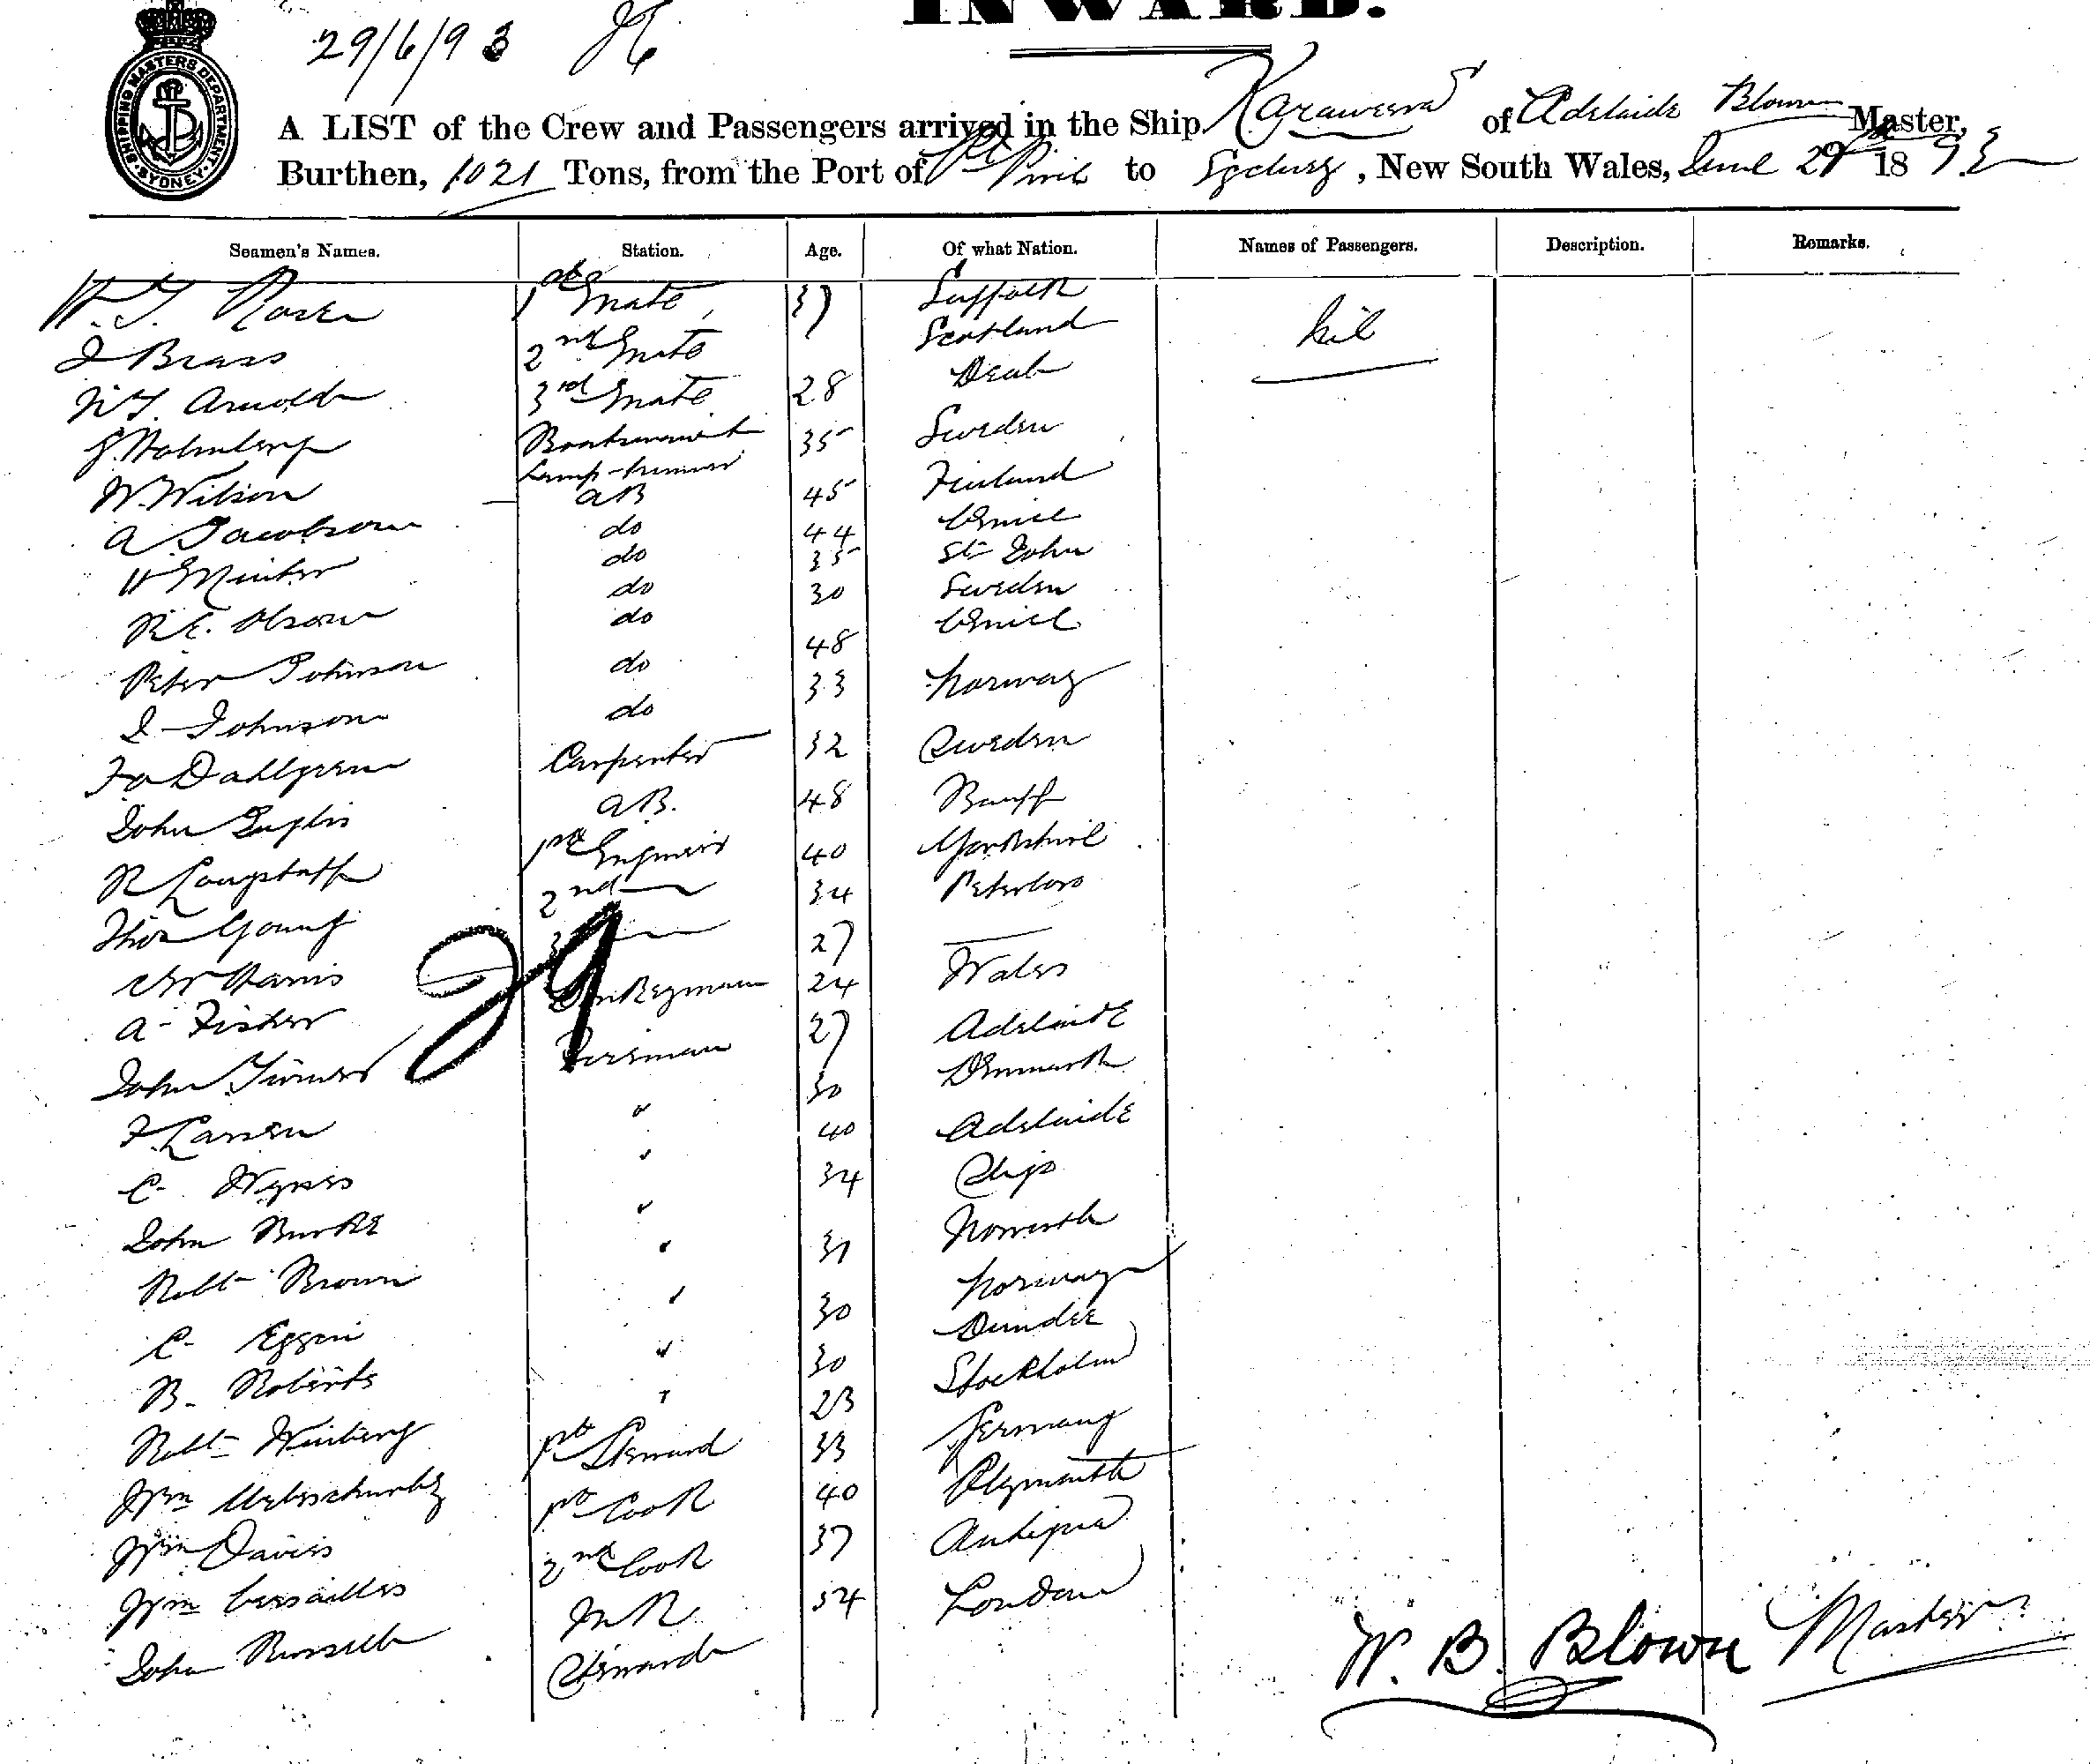 INWARD.
29/6/93
SHIPPING MASTERS DEPARTMENT SYDNEY
A LIST of the Crew and Passengers arrived in the Ship Karaweera of Adelaide Blown Master,
Burthen, 1021 Tons, from the Port of Pt Pirie to Sydney, New South Wales, June 29 1893
Seamen's Names. Station. Age. Of what Nation. Names of Passengers. Description. Remarks.
1st Mate 37 Suffolk Nil
J Brass 2nd Mate Scotland
Arnold 3rd Mate 28 Deal
G. Holmberg Boatswain 35 Sweden
W. Wilson Lamp-trimmer AB 45 Finland
A Jacobson do 44
H Minter do 35 St John
R.E. Olsson do 30 Sweden
Peter Johnson do 48
J Johnson do 33 Norway
Dahlgren Carpenter 32 Sweden
John Inglis AB. 48 Banff
R Longstaff 1st Engineer 40 Yorkshire
Thos Young 2nd 34 Peterboro
Harris 3 27
A Fisher Donkeyman 24 Wales
John Turner Fireman 27 Adelaide
F Larsen " 30 Denmark
C. " 40 Adelaide
John Burke " 34 Ship
Robt Brown " 31
C. Eggen " 30 Norway
B. Roberts " 30 Dundee
Robt Winberg " 23 Stockholm
Wm 1st Steward 33 Germany
Wm Davies 1st Cook 40 Plymouth
Wm Versailles 2nd Cook 37 Antigua
John Russell M R Steward 34 London
29
W. B. Blown Master